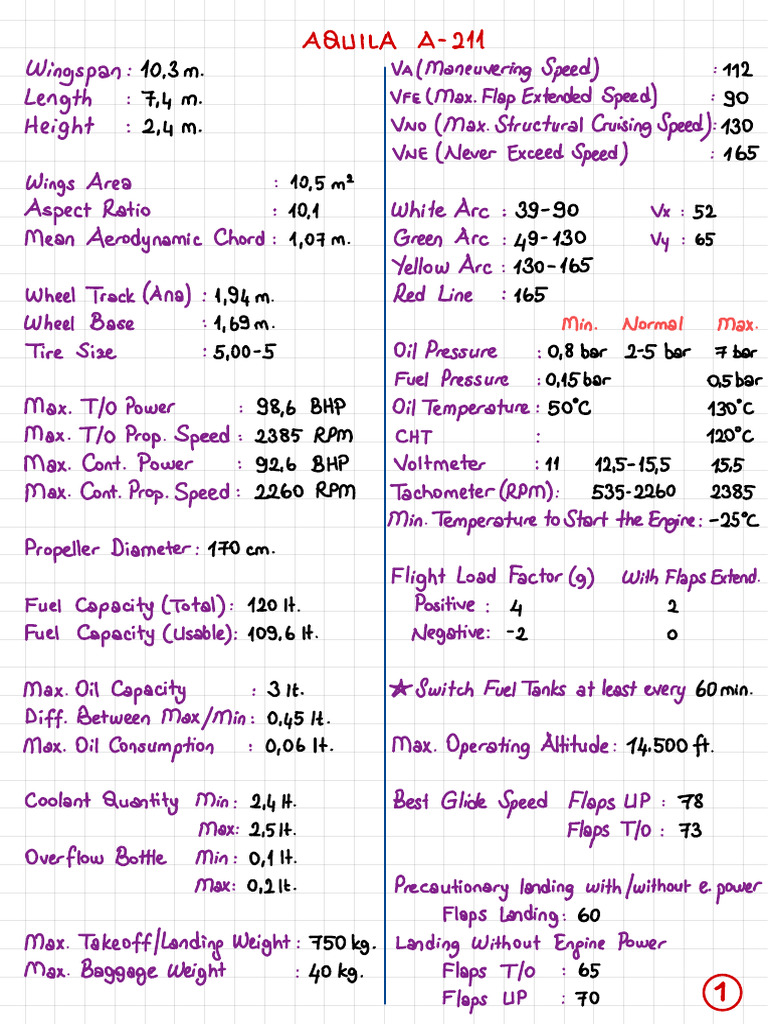 AQUILA A-211
Wingspan : 10,3 m.
Length : 7,4 m.
Height : 2,4 m.
Wings Area : 10,5 m²
Aspect Ratio : 10,1
Mean Aerodynamic Chord : 1,07 m.
Wheel Track (Ana) : 1,94 m.
Wheel Base : 1,69 m.
Tire Size : 5,00-5
Max. T/O Power : 98,6 BHP
Max. T/O Prop. Speed : 2385 RPM
Max. Cont. Power : 92,6 BHP
Max. Cont. Prop. Speed : 2260 RPM
Propeller Diameter : 170 cm.
Fuel Capacity (Total) : 120 lt.
Fuel Capacity (Usable) : 109,6 lt.
Max. Oil Capacity : 3 lt.
Diff. Between Max/Min : 0,45 lt.
Max. Oil Consumption : 0,06 lt.
Coolant Quantity Min : 2,4 lt.
Max : 2,5 lt.
Overflow Bottle Min : 0,1 lt.
Max : 0,2 lt.
Max. Takeoff/Landing Weight : 750 kg.
Max. Baggage Weight : 40 kg.
VA (Maneuvering Speed) : 112
VFE (Max. Flap Extended Speed) : 90
VNO (Max. Structural Cruising Speed) : 130
VNE (Never Exceed Speed) : 165
White Arc : 39-90 Vx : 52
Green Arc : 49-130 Vy : 65
Yellow Arc : 130-165
Red Line : 165
Min. Normal Max.
Oil Pressure : 0,8 bar 2-5 bar 7 bar
Fuel Pressure : 0,15 bar 0,5 bar
Oil Temperature : 50°C 130°C
CHT : 120°C
Voltmeter : 11 12,5-15,5 15,5
Tachometer (RPM) : 535-2260 2385
Min. Temperature to Start the Engine : -25°C
Flight Load Factor (g) With Flaps Extend.
Positive : 4 2
Negative : -2 0
★ Switch Fuel Tanks at least every 60 min.
Max. Operating Altitude : 14.500 ft.
Best Glide Speed Flaps UP : 78
Flaps T/O : 73
Precautionary landing with/without e. power
Flaps Landing : 60
Landing Without Engine Power
Flaps T/O : 65
Flaps UP : 70
1